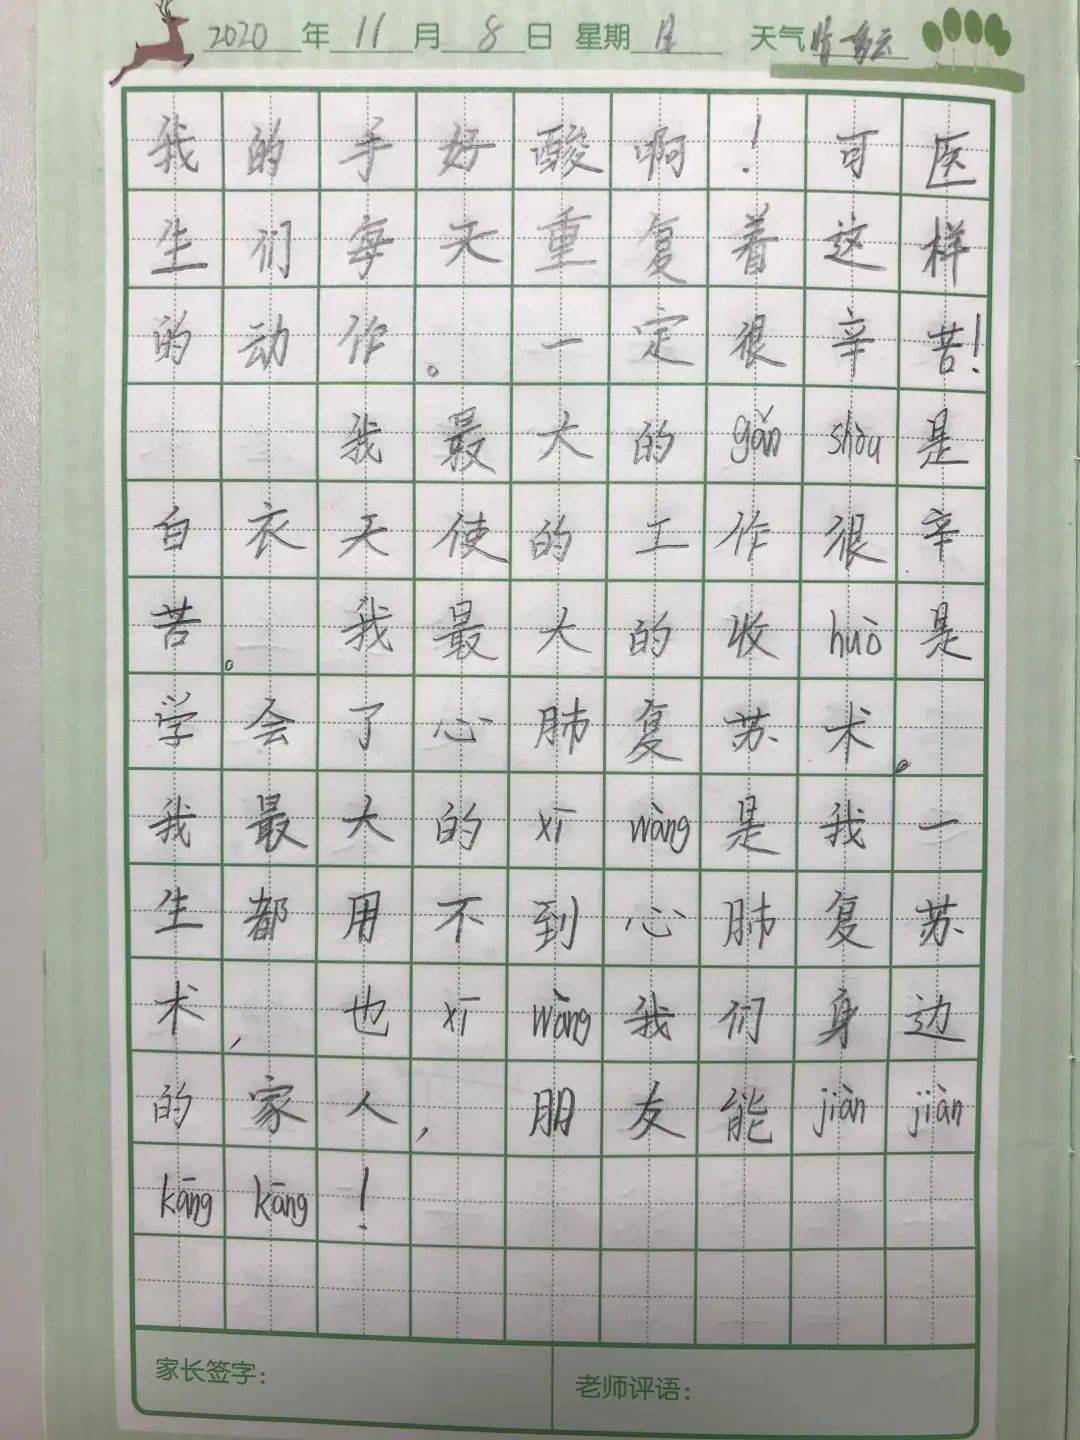 2020年11月8日 星期日 天气晴多云
我的手好酸啊！可医
生们每天重复着这样
的动作。一定很辛苦！
我最大的gǎn shòu是
白衣天使的工作很辛
苦。我最大的收huò是
学会了心肺复苏术。
我最大的xī wàng是我一
生都用不到心肺复苏
术，也xī wàng我们身边
的家人，朋友能jiàn jiàn
kāng kāng！
家长签字：
老师评语：